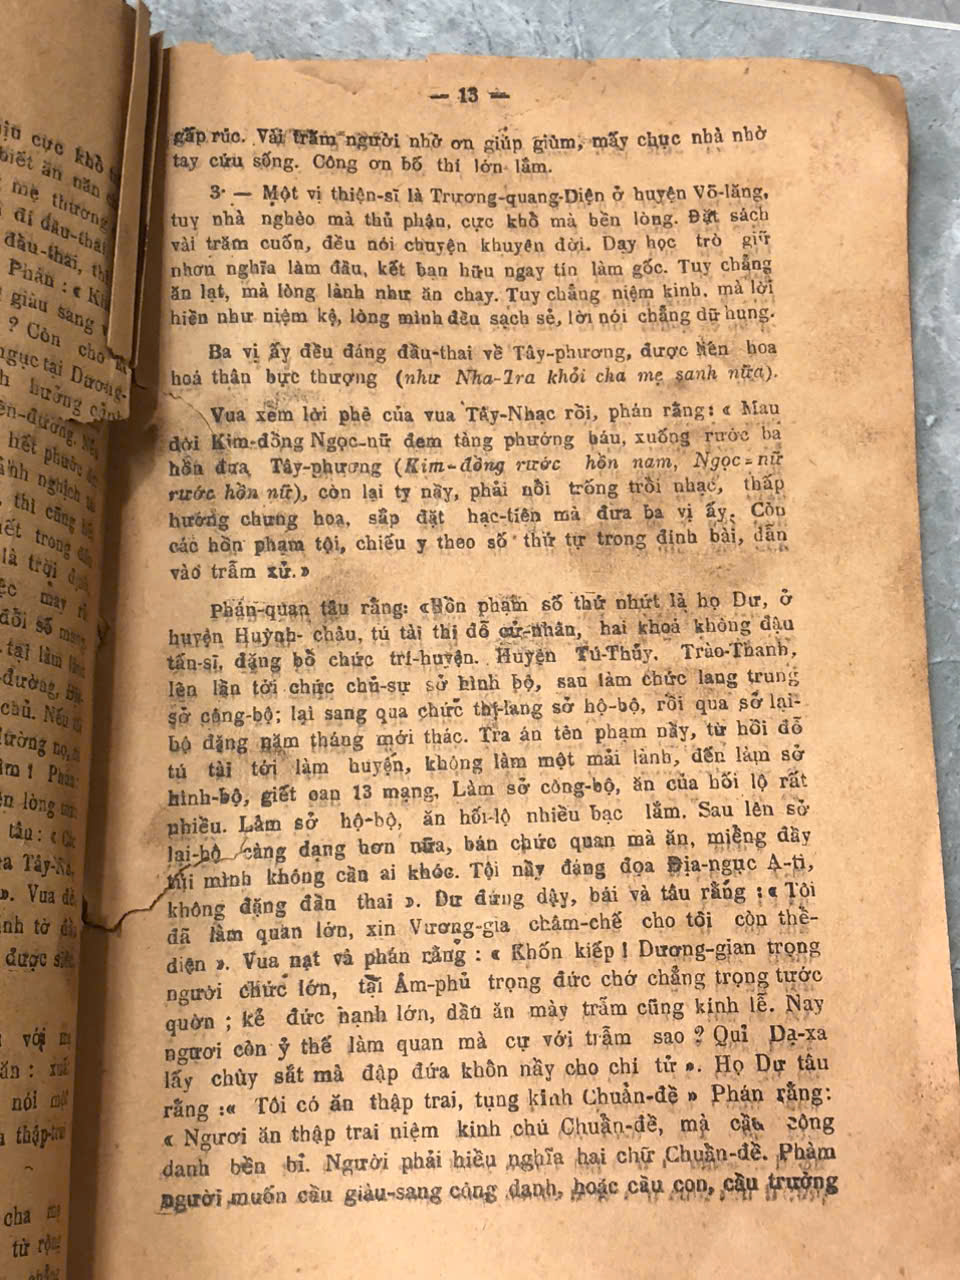 ịu cực khổ
biết ăn năn
mẹ thương
đi đầu-thai
đầu-thai,
Phán : «
giàu sang
? Còn cho
ngục tại Dương-
hưởng
hết phước
nghịch
thì cũng
trong
là trời
đổi số
tại làm
đường,
chủ. Nếu
đường
lòng
tâu : «
Tây-
». Vua
tờ
được
với
ăn :
nói
thập-
cha
từ
— 13 —
gấp rúc. Vài trăm người nhờ ơn giúp giùm, mấy chục nhà nhờ
tay cứu sống. Công ơn bố thí lớn lắm.
3· — Một vị thiện-sĩ là Trương-quang-Diện ở huyện Võ-lăng,
tuy nhà nghèo mà thủ phận, cực khổ mà bền lòng. Đặt sách
vài trăm cuốn, đều nói chuyện khuyên đời. Dạy học trò giữ
nhơn nghĩa làm đầu, kết bạn hữu ngay tín làm gốc. Tuy chẳng
ăn lạt, mà lòng lành như ăn chay. Tuy chẳng niệm kinh, mà lời
hiền như niệm kệ, lòng mình đều sạch sẽ, lời nói chẳng dữ hung.
Ba vị ấy đều đáng đầu-thai về Tây-phương, được lên hoa
hoá thân bực thượng (như Nha-Tra khỏi cha mẹ sanh nữa).
Vua xem lời phê của vua Tây-Nhạc rồi, phán rằng : « Mau
đòi Kim-đồng Ngọc-nữ đem tàng phướng báu, xuống rước ba
hồn đưa Tây-phương (Kim-đồng rước hồn nam, Ngọc-nữ
rước hồn nữ), còn lại ty nầy, phải nồi trống trồi nhạc, thắp
hương chưng hoa, sắp đặt hạc-tiên mà đưa ba vị ấy. Còn
các hồn phạm tội, chiếu y theo số thứ tự trong đinh bài, dẫn
vào trẫm xử.»
Phán-quan tâu rằng: «Hồn phạm số thứ nhứt là họ Dư, ở
huyện Huỳnh- châu, tú tài thi đỗ cử-nhân, hai khoá không đậu
tấn-sĩ, đặng bổ chức tri-huyện. Huyện Tú-Thủy. Trào-Thanh,
lên lần tới chức chủ-sự sở hình bộ, sau làm chức lang trung
sở công-bộ; lại sang qua chức thị-lang sở hộ-bộ, rồi qua sở lại-
bộ đặng năm tháng mới thác. Tra án tên phạm nầy, từ hồi đỗ
tú tài tới làm huyện, không làm một mải lành, đến làm sở
hình-bộ, giết oan 13 mạng, Làm sở công-bộ, ăn của hối lộ rất
nhiều. Làm sở hộ-bộ, ăn hối-lộ nhiều bạc lắm. Sau lên sở
lại-bộ càng dạng hơn nữa, bán chức quan mà ăn, miễng đầy
túi mình không cần ai khóc. Tội nầy đáng đọa Địa-ngục A-tì,
không đặng đầu thai ». Dư đứng dậy, bái và tâu rằng : « Tội
đã làm quan lớn, xin Vương-gia châm-chế cho tội còn thể-
diện ». Vua nạt và phán rằng : « Khốn kiếp ! Dương-gian trọng
người chức lớn, tại Âm-phủ trọng đức chớ chẳng trọng tước
quờn ; kẻ đức hạnh lớn, dầu ăn mày trẫm cũng kinh lễ. Nay
ngươi còn ỷ thế làm quan mà cự với trẫm sao ? Quỉ Dạ-xa
lấy chùy sắt mà đập đứa khôn nầy cho chi tử ». Họ Dư tâu
rằng :« Tôi có ăn thập trai, tụng kinh Chuẩn-đề » Phán rằng:
« Ngươi ăn thập trai niệm kinh chú Chuẩn-đề, mà cầu công
danh bền bỉ. Người phải hiểu nghĩa hai chữ Chuẩn-đề. Phàm
người muốn cầu giàu-sang công danh, hoặc cầu con, cầu trường